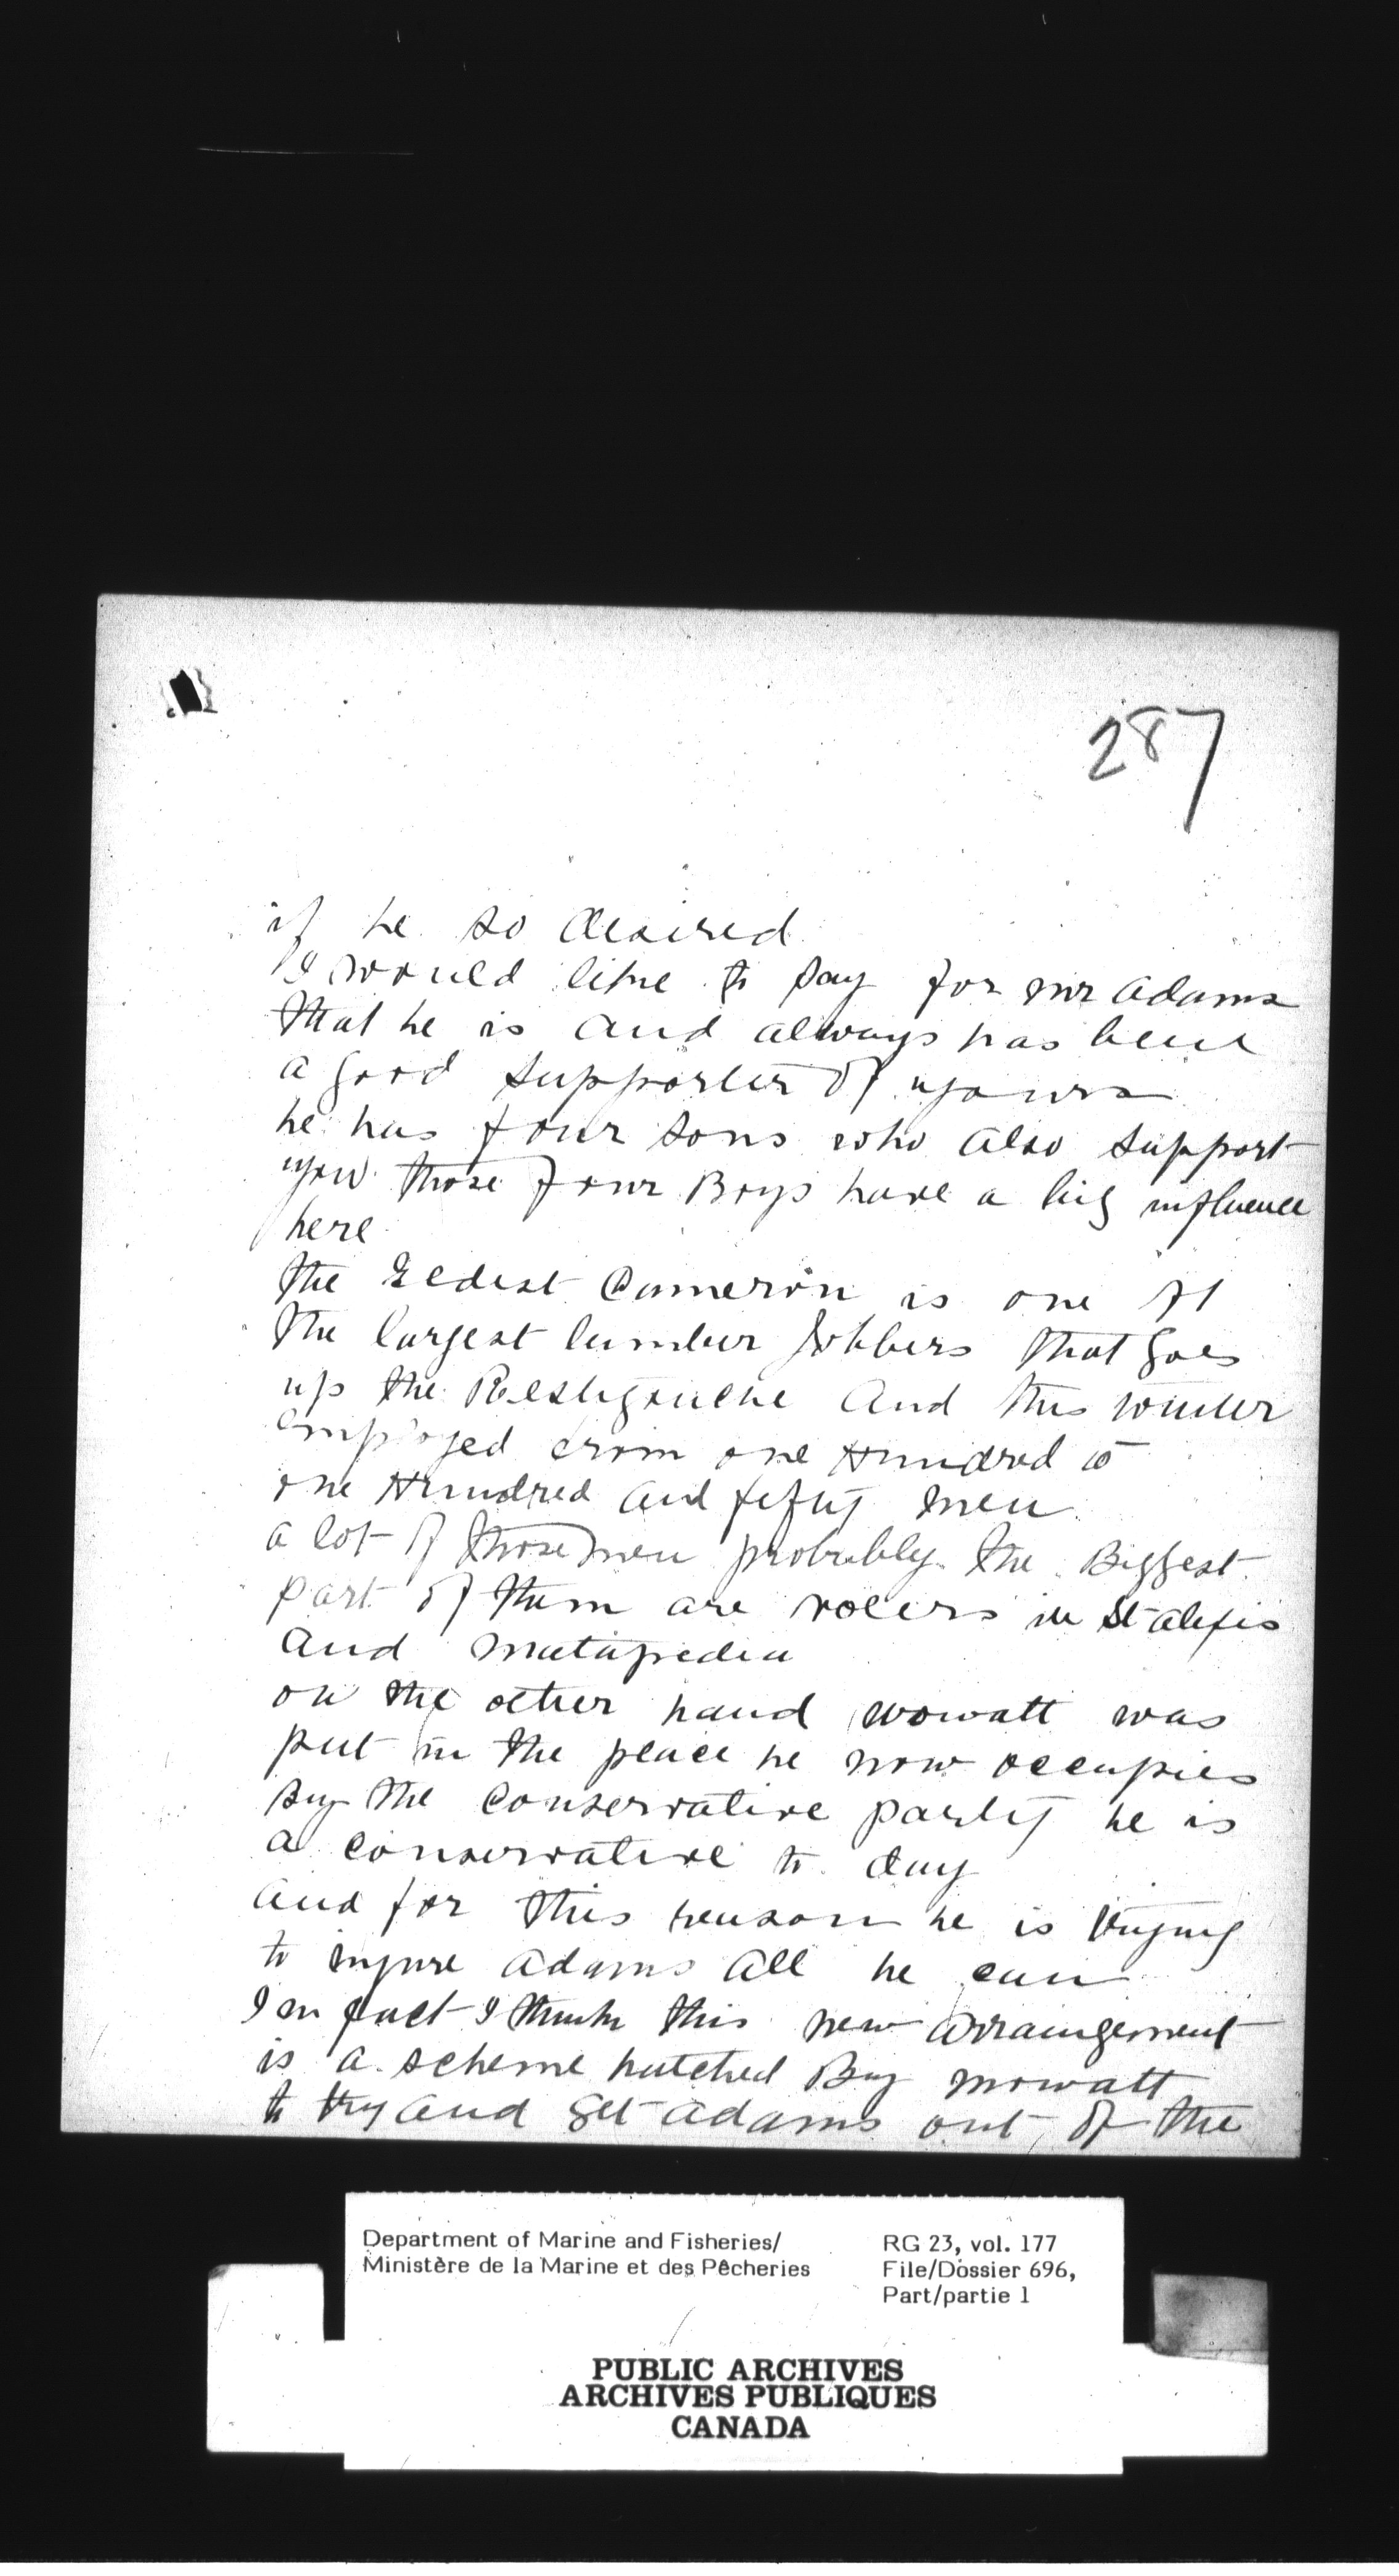 287
if he so desired
I would like to say for mr adams
that he is and always has been
a good supporter of yours
he has four sons who also support
you those four Boys have a big influence
here
the Eldest Cameron is one of
the largest lumber Jobbers that goes
up the Restigouche and this winter
employed from one Hundred to
one Hundred and fifty men
a lot of those men probably the Biggest
part of them are voters in St alexis
and matapedia
on the other hand mowatt was
put in the place he now occupies
by the conservative party he is
a conservative to day
and for this reason he is trying
to injure adams all he can
In fact I think this new arraingement
is a scheme hatched By mowatt
to try and get adams out of the
Department of Marine and Fisheries/
Ministère de la Marine et des Pêcheries
RG 23, vol. 177
File/Dossier 696,
Part/partie 1
PUBLIC ARCHIVES
ARCHIVES PUBLIQUES
CANADA